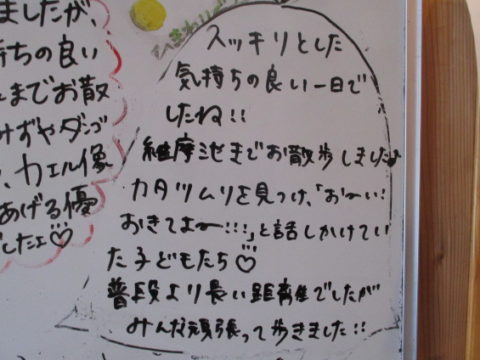 ましたが、
持ちの良い
までお散
みずやダンゴ
、カエル像
あげる優
でしたエ♡
ひまわり
スッキリとした
気持ちの良い一日で
したね!!
維摩池までお散歩しましたよ
カタツムリを見つけ、「お〜い!
おきてよ〜!!!」と話しかけてい
た子どもたち♡
普段より長い距離でしたが
みんな頑張って歩きました!!